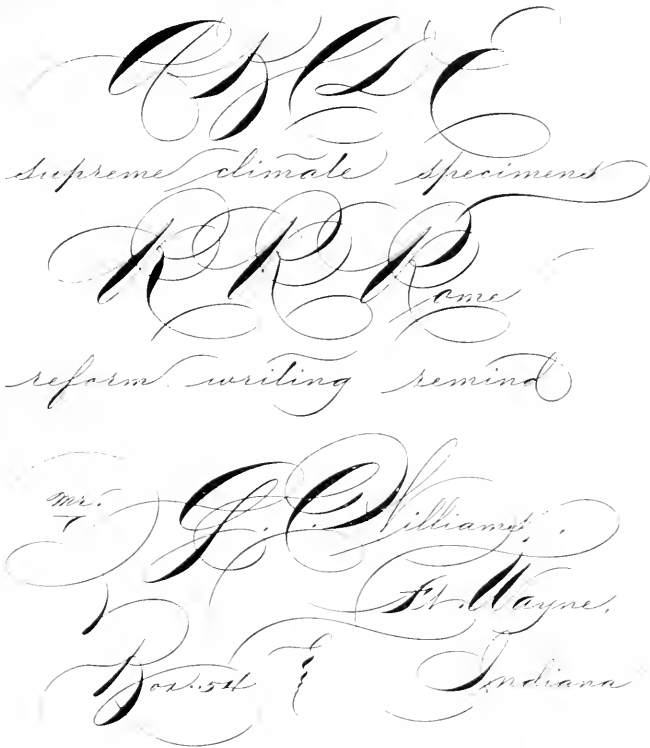 A B C D E
supreme climate specimens
R R R Rome
reform writing remind
Mr. J. C. Williams,
Ft. Wayne,
Box 54 Indiana